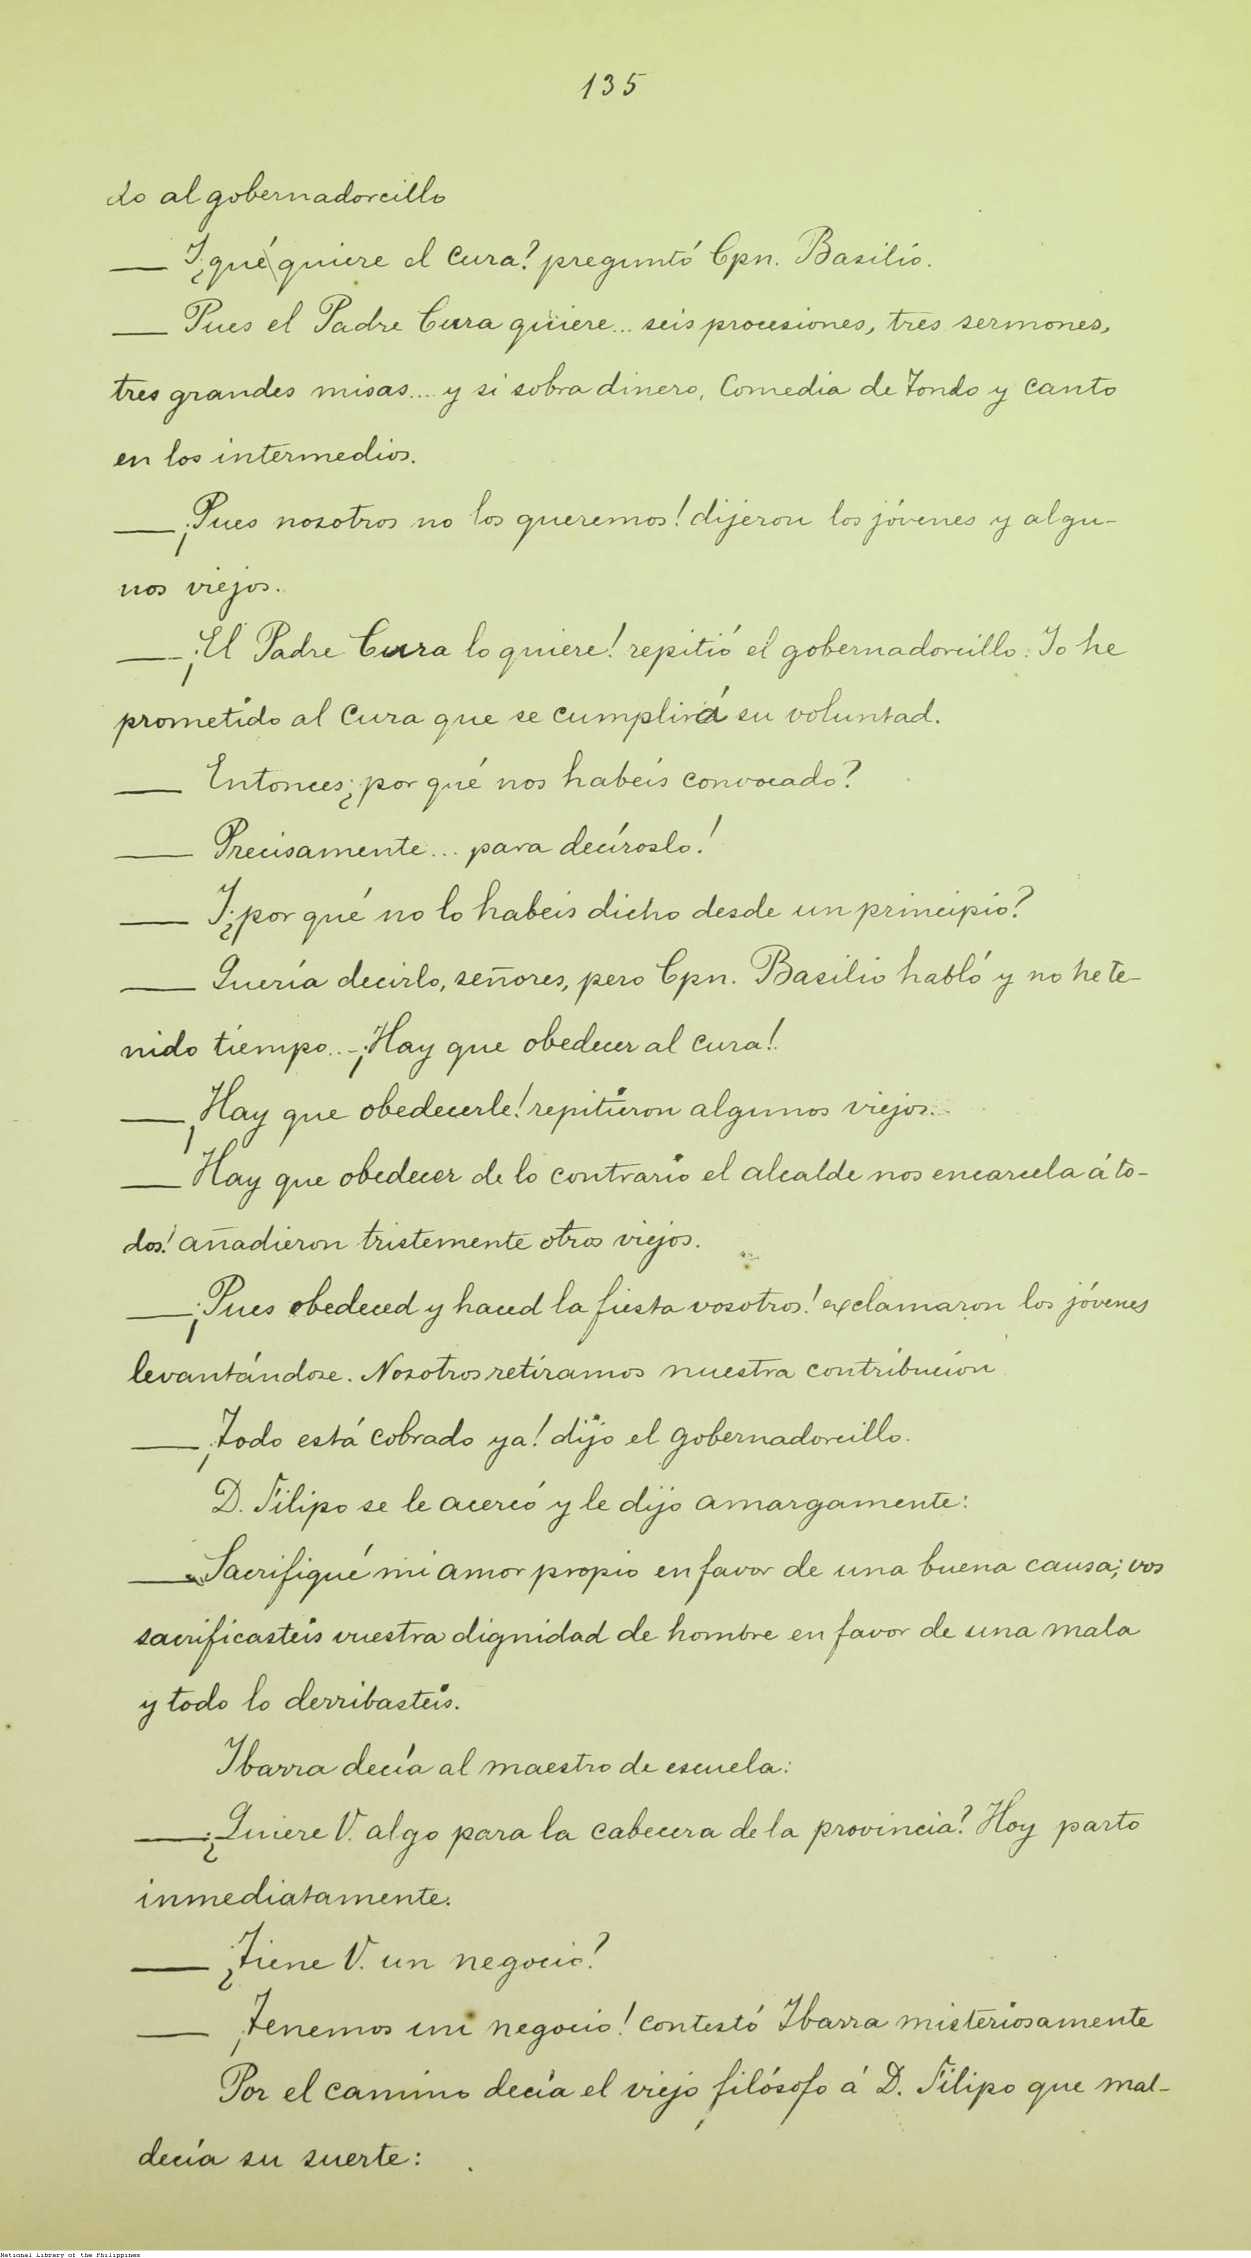 135
do al gobernadorcillo
— Y ¿qué quiere el cura? preguntó Cpn. Basilio.
— Pues el Padre Cura quiere... seis procesiones, tres sermones,
tres grandes misas.... y si sobra dinero, Comedia de Tondo y canto
en los intermedios.
— ¡Pues nosotros no los queremos! dijeron los jóvenes y algu-
nos viejos.
— ¡El Padre Cura lo quiere! repitió el gobernadorcillo: Yo he
prometido al cura que se cumplirá su voluntad.
— Entonces ¿por qué nos habeis convocado?
— Precisamente... para decíroslo!
— Y ¿por qué no lo habeis dicho desde un principio?
— Quería decirlo, señores, pero Cpn. Basilio habló y no he te-
nido tiempo... ¡Hay que obedecer al cura!
— ¡Hay que obedecerle! repitieron algunos viejos.
— Hay que obedecer de lo contrario el alcalde nos encarcela á to-
dos! añadieron tristemente otros viejos.
— ¡Pues obedeced y haced la fiesta vosotros! exclamaron los jóvenes
levantándose. Nosotros retiramos nuestra contribucion
— ¡Todo está cobrado ya! dijo el gobernadorcillo.
D. Filipo se le acercó y le dijo amargamente:
— Sacrifiqué mi amor propio en favor de una buena causa; vos
sacrificasteis vuestra dignidad de hombre en favor de una mala
y todo lo derribasteis.
Ibarra decía al maestro de escuela:
— ¿Quiere V. algo para la cabecera de la provincia? Hoy parto
inmediatamente.
— ¿Tiene V. un negocio?
— ¡Tenemos un negocio! contestó Ibarra misteriosamente
Por el camino decía el viejo filósofo á D. Filipo que mal-
decía su suerte:
National Library of the Philippines